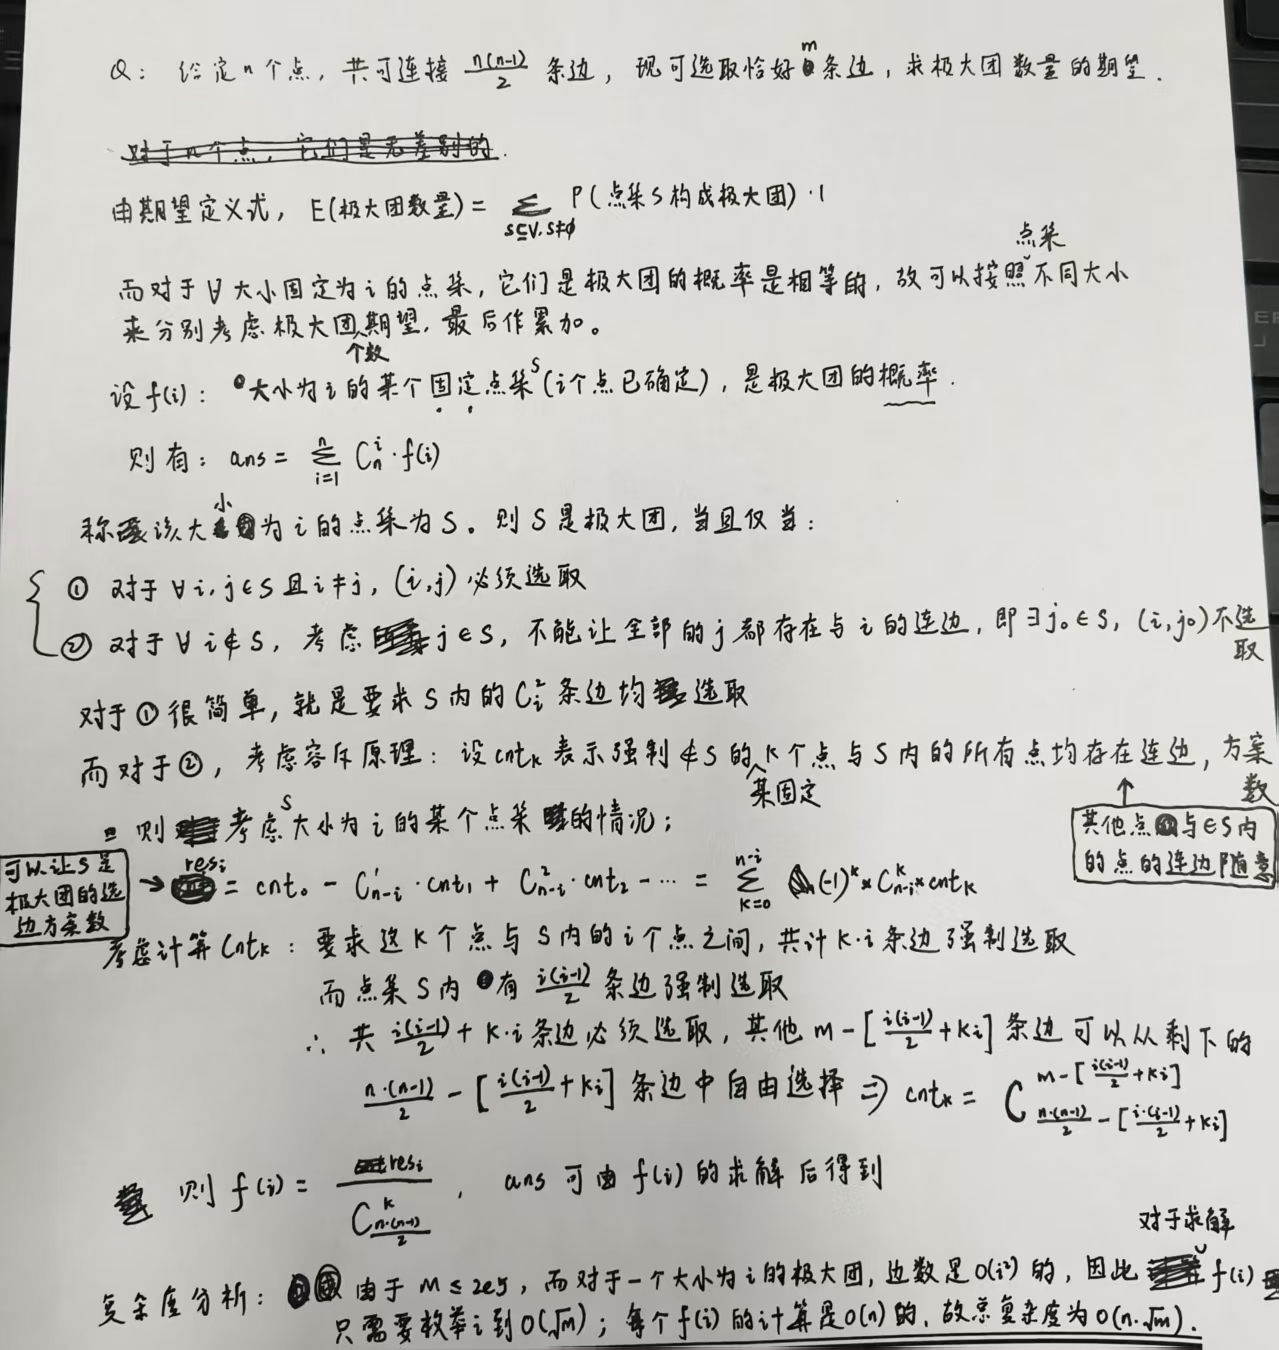 Q: 给定n个点，共可连接 n(n-1)/2 条边，现可选取恰好m条边，求极大团数量的期望.
对于n个点，它们是无差别的.
由期望定义式，E(极大团数量) = Σ_{S⊆V, S≠∅} P(点集S构成极大团)·1
而对于∀大小固定为i的点集，它们是极大团的概率是相等的，故可以按照点集不同大小
来分别考虑极大团个数期望，最后作累加。
设f(i)：大小为i的某个固定点集S(i个点已确定)，是极大团的概率.
则有：ans = Σ_{i=1}^{n} C_n^i·f(i)
称该大小为i的点集为S。则S是极大团，当且仅当：
① 对于∀i,j∈S且i≠j，(i,j)必须选取
② 对于∀i∉S，考虑j∈S，不能让全部的j都存在与i的连边，即∃j₀∈S，(i,j₀)不选取
对于①很简单，就是要求S内的C_i^2条边均选取
而对于②，考虑容斥原理：设cnt_k表示强制∉S的某固定k个点与S内的所有点均存在连边，方案数
其他点与∈S内的点的连边随意
则考虑S大小为i的某个点集的情况；
可以让S是极大团的选边方案数 → res_i = cnt_0 - C_{n-i}^1·cnt_1 + C_{n-i}^2·cnt_2 - ··· = Σ_{k=0}^{n-i} (-1)^k × C_{n-i}^k × cnt_k
考虑计算cnt_k：要求这k个点与S内的i个点之间，共计k·i条边强制选取
而点集S内有 i(i-1)/2 条边强制选取
∴ 共 i(i-1)/2 + k·i 条边必须选取，其他 m-[i(i-1)/2+ki] 条边可以从剩下的
n·(n-1)/2 - [i(i-1)/2+ki] 条边中自由选择 ⇒ cnt_k = C_{n·(n-1)/2-[i·(i-1)/2+ki]}^{m-[i(i-1)/2+ki]}
则f(i) = res_i / C_{n·(n-1)/2}^k，ans可由f(i)的求解后得到
复杂度分析：由于m≤2e5，而对于一个大小为i的极大团，边数是O(i²)的，因此对于求解f(i)
只需要枚举i到O(√m)；每个f(i)的计算是O(n)的，故总复杂度为O(n·√m).